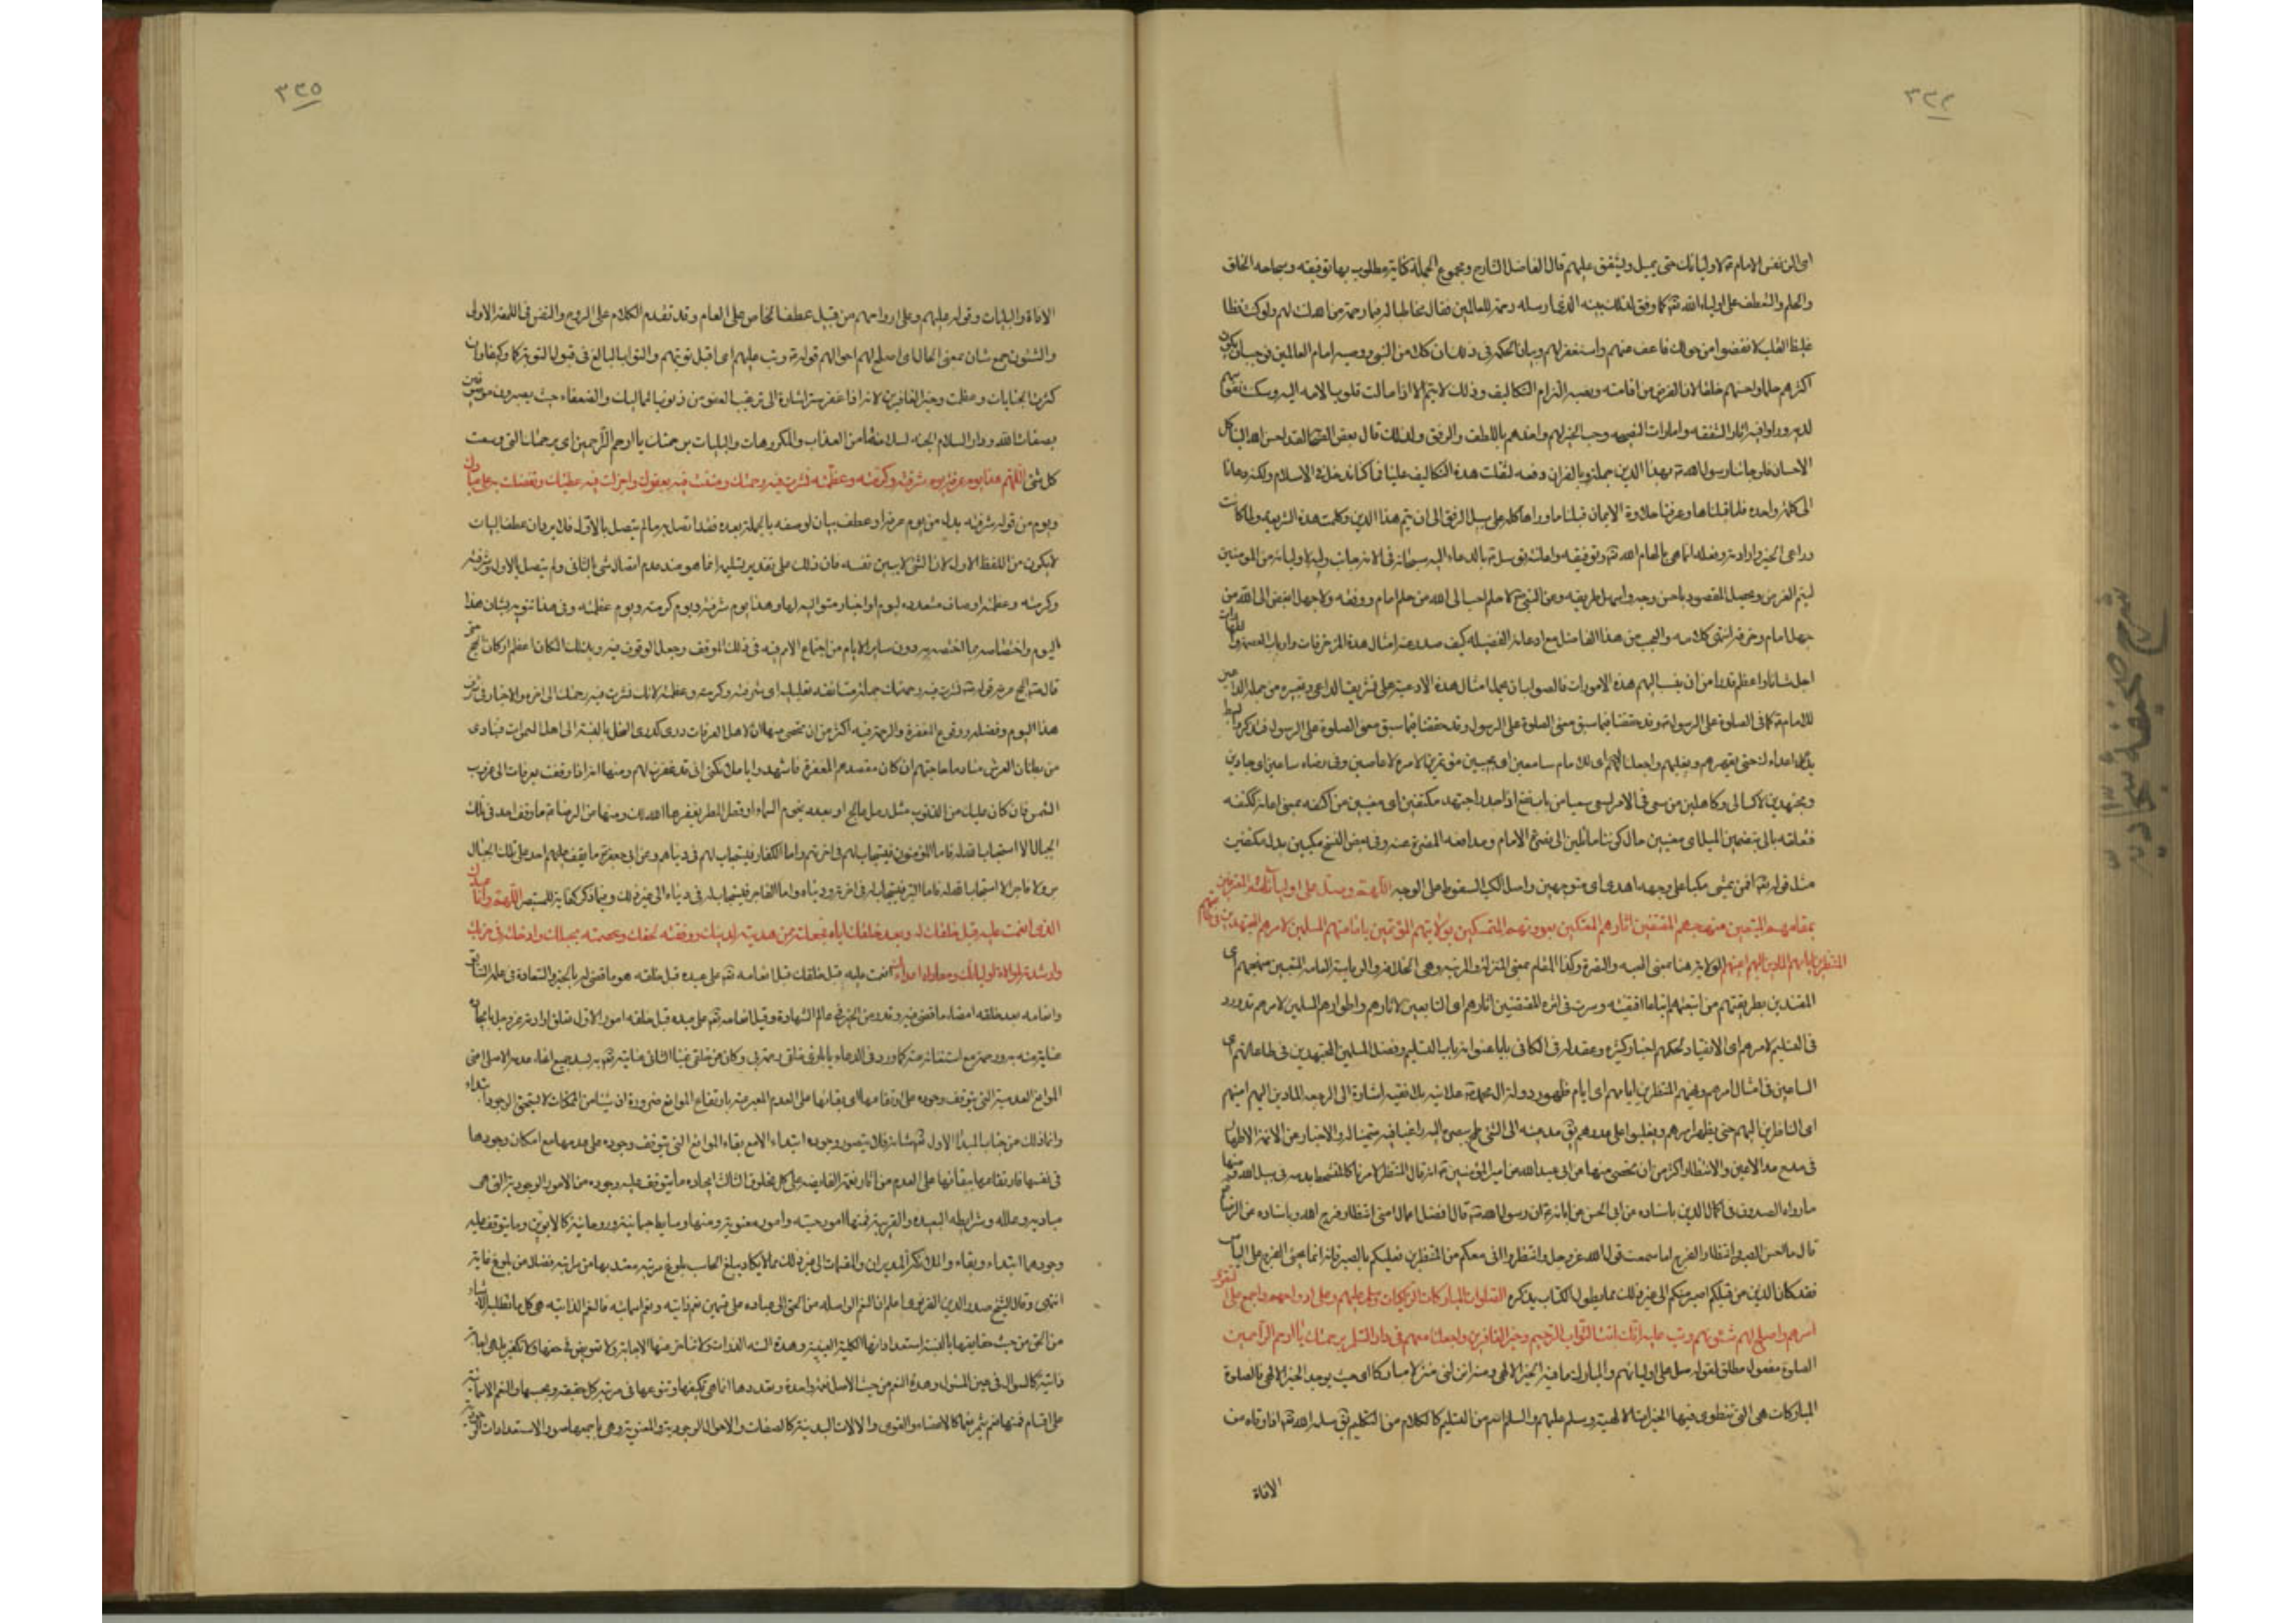 ٣٢٤
اى الن نفس الامام ع لاوليائك حتى يميل ويشفق عليهم قال الفاضل الشارح ومجموع الجملة كناية مطلوب بها توفيقه وسجاحه الخلق
والحلم والتعطف على اولياء الله تعالى كما وفق لذلك نبيه الذى ارسله رحمة للعالمين فقال مخاطبا له فبما رحمة من الله لنت لهم ولو كنت فظا
غليظ القلب لانفضوا من حولك فاعف عنهم واستغفر لهم وبيان الحكمة فى ذلك ان كلا من النبى ووصيه امام العالمين فيجب ان يكون
اكثرهم حلما واحسنهم خلقا لان الغرض من اقامته ونصبه الزام التكاليف وذلك لا يتم الا اذا مالت قلوب الامة اليه وسكنت نفوسهم
لديه وراوا فيه اثار الشفقه وامارات النصيحه وحب الخير لهم واخذهم باللطف والرفق ولذلك قال بعض الصحابة لقد احسن الله الينا كل
الاحسان فلو جائنا رسول الله بهذا الدين جملة وبالقران دفعه لثقلت هذه التكاليف علينا فما كنا ندخل فى الاسلام ولكنه دعانا
الى كلمة واحده فلما قبلناها وعرفنا حلاوة الايمان قبلنا ما وراها كلمة على سبيل الرفق الى ان يتم هذا الدين وكملت هذه الشريعه ولما كانت
دواعى الخير وارادته وفعله انما هى بالهام الله تعالى وتوفيقه واعانته توسل بالدعاء اليه سبحانه فى الانة جانب وليه لاوليائه من المومنين
ليتم الغرض ويحصل المقصود باحسن وجه واسهل طريقه وعن النبى لا حلم احب الى الله من حلم امام ورفقه ولا جهل ابغض الى الله من
جهل امام وخرقه انتهى كلامه والعجب من هذا الفاضل مع ادعائه الفضيله كيف صدر عنه امثال هذه المزخرفات وارباب العصمة والطهارات
اجل شانا واعظم قدرا من ان ينسب اليهم هذه الامورات فالصواب ان يحمل امثال هذه الادعية على تشريف الداعى وتصييره من جملة الداعين
للامام ع كما فى الصلوة على الرسول وقد حققنا فيما سبق معنى الصلوة على الرسول فذكره
يدك على اعدائك حتى يقهرهم ويغلبهم واجعلنا اللهم اى لك امام سامعين اى مجيبين مؤتمرين لامره لا عاصين وفى رضاه ساعين اى جادين
ومجتهدين لا كسالى وكاهلين من سعى فى الامر يسعى سعيا من باب نفع اذا جد واجتهد مكنفين اى معينين من اكنفه بمعنى اعانه ككنفه
فتعلقه بالى بتضمين الميل اى معينين حال كوننا مائلين الى نصرة الامام ومدافعه المضرة عنه وفى بعض النسخ مكبين بدل مكنفين
مثل قوله تعالى افمن يمشى مكبا على وجهه اهدى اى متوجهين واصل الكب السقوط على الوجه اللهم وصل على اوليائهم المعترفين
بمقامهم المتبعين منهجهم المقتفين اثارهم المتمسكين بعروتهم المتمسكين بولايتهم المؤتمين بامامتهم المسلمين لامرهم المجتهدين فى طاعتهم
المنتظرين ايامهم المادين اليهم اعينهم الولاية هنا بمعنى المحبه والنصرة وكذا المقام بمعنى المنزلة والمرتبه وهى الخلافة والرياسة العامه المتبعين منهجهم اى
المقتدين بطريقتهم من اتبعتهم اتباعا اقتفيته وسرت فى اثره المقتفين اثارهم اى التابعين لاثارهم واطوارهم المسلمين لامرهم قد ورد
فى التسليم لامرهم اى الانقياد لحكمهم اخبار كثيره وعقد له فى الكافى بابا عنوانه باب التسليم وفضل المسلمين المجتهدين فى طاعتهم اى
الساعين فى امتثال امرهم ونهيهم المنتظرين ايامهم اى ايام ظهور دولة ال محمد علانية بلا تقيه اشارة الى الرجعه المادين اليهم اعينهم
اى الناظرين اليهم حتى يظهر امرهم ويغلبوا على عدوهم يق مد عينه الى الشئ طمح ببصره اليه راغبا فيه متمنيا له والاخبار عن الائمة الاطهار
فى مدح مد الاعين والانتظار اكثر من ان تحصى منها عن ابى عبد الله عن امير المؤمنين انه قال المنتظر لامرنا كالمتشحط بدمه فى سبيل الله ومنها
ما رواه الصدوق فى اكمال الدين باسناده عن ابى الحسن عن ابائه ان رسول الله قال افضل اعمال امتى انتظار فرج الله وباسناده عن الرضا
قال ما احسن الصبر وانتظار الفرج اما سمعت قول الله عز وجل وانتظروا انى معكم من المنتظرين فعليكم بالصبر فانه انما يجئ الفرج على الياس
فقد كان الذين من قبلكم اصبر منكم الى غير ذلك مما يطول الكتاب بذكره الصلوات المباركات الزاكيات وسلم عليهم وعلى ارواحهم واجمع على التقوى
امرهم واصلح لهم شئونهم وتب عليهم انك انت التواب الرحيم وخير الغافرين واجعلنا معهم فى دار السلام برحمتك يا ارحم الراحمين
الصلوة مفعول مطلق لقوله صل على اوليائهم والمبارك ما فيه الخير الالهى ومنه انزلنى منزلا مباركا اى حيث يوجد الخير الالهى فالصلوة
المباركات هى التى تنطوى فيها الخيرات الالهية وسلم عليهم والسلم اسم من التسليم كالكلام من التكليم يق سلمه الله تعالى افاوقاه من
الافاة
٣٢٥
الافاة والبليات وقوله عليهم وعلى ارواحهم من قبيل عطف الخاص على العام وقد تقدم الكلام على الروح والنفس فى اللمعة الاولى
والشئون جمع شان بمعنى الحال اى اصلح لهم احوالهم قوله وتب عليهم اى اقبل توبتهم والتواب البالغ فى قبول التوبة كما وكيفا وان
كثرت الجنايات وعظمت وخير الغافرين لانه اذا غفر ستر اشارة الى ترتب العفو من ذنوب المماليك والضعفاء حيث يصيرون موصوفين
بصفات الله ودار السلام الجنه لسلامتها من العذاب والمكروهات والبليات برحمتك يا ارحم الراحمين اى برحمتك التى وسعت
كل شئ اللهم هذا يوم عرفة يوم شرفته وكرمته وعظمته نشرت فيه رحمتك ومننت فيه بعفوك واجزلت فيه عطيتك وتفضلت به على عبادك
ويوم من قوله شرفته بدل من يوم عرفة او عطف بيان لوصفه بالجملة بعده فقد اتصل به ما لم يتصل بالاول فلا يرد ان عطف البيان
لا يكون من اللفظ الاول لان الشئ لا يبين نفسه فان ذلك على تقدير تسليمه انما هو عند عدم اتصال شئ بالثانى ولم يتصل بالاول وشرفته
وكرمته وعظمته اوصاف متعدده ليوم او اخبار متواليه لها وهذا يوم شرفته ويوم كرمته ويوم عظمته وفى هذا تنويه بشان هذا
اليوم واختصاصه بما اختص به دون ساير الايام من اجتماع الامم فيه فى ذلك الموقف وجعل الوقوف فيه وبذلك المكان اعظم اركان الحج حتى
قال الحج عرفة قوله نشرت فيه رحمتك جملة مستانفه تعليليه اى شرفته وكرمته وعظمته لانك نشرت فيه رحمتك الى اخره والاخبار فى شرف
هذا اليوم وفضله ووقوع المغفرة والرحمة فيه اكثر من ان تحصى
من بطنان العرش مناد ما حاجتهم ان كان مقصدهم المغفرة فاشهدوا يا ملائكتى انى قد غفرت لهم ومنها انه اذا وقفت بعرفات الى غروب
الشمس فان كان عليك من الذنوب مثل رمل عالج او بعدد نجوم السماء او قطر المطر يغفرها الله لك ومنها عن الرضا ما وقف احد فى تلك
الجبال الا استجاب الله له فاما المؤمنون فيستجاب لهم فى اخرتهم واما الكفار فيستجاب لهم فى دنياهم وعن ابى جعفر ما يقف عليهم احد على تلك الجبال
بر ولا فاجر الا استجاب الله له فاما البر فيستجاب له فى اخرته ودنياه واما الفاجر فيستجاب له فى دنياه الى غير ذلك وفيما ذكر كفاية للمستبصر اللهم وانا عبدك
الذى انعمت عليه قبل خلقك له وبعد خلقك اياه فجعلته ممن هديته لدينك ووفقته لحقك وعصمته بحبلك وادخلته فى حزبك
وارشدته لموالاة اوليائك ومعاداة اعدائك انعمت عليه قبل خلقك قيل انعامه تعالى على عبده قبل خلقه هو ما قضى له بالخير والسعادة فى علمه السابق
وانعامه بعد خلقه امضاء ما قضى فيه وقدره من الخير فى عالم الشهادة وقيل انعامه تعالى على عبده قبل خلقه امور الاول تعلق ارادته عز وجل بايجاده
عناية منه به ورحمة مع استغنائه عنه كما ورد فى الدعاء يا من خلقنى برحمته بى وكان عن خلقى غنيا الثانى عنايته تعالى به بسد جميع انحاء عدمه الاصلى اعنى
الموانع العدمية التى يتوقف وجوده على ارتفاعها اى بقائها على العدم المعبر عنه بارتفاع الموانع ضرورة ان شيئا من الممكنات لا يستحق الوجود ابتداء
وانما ذلك من جناب المبدأ الاول تعالى شانه فلا يتصور وجوده ابتداء الا مع بقاء الموانع التى يتوقف وجوده على عدمها مع امكان وجودها
فى نفسها فارتفاعها وبقائها على العدم من اثار نعمة الفايضه على كل مخلوق الثالث ايجاده ما يتوقف عليه وجوده من الامور الوجودية التى هى
مباديه وعلله وشرايطه البعيده والقريبة فمنها امور حسيه وامور معنوية ومنها وسايط جسمانية وروحانية كالابوين وما يتوقف عليه
وجودهما ابتداء وبقاء والملائكة المدبرات والمقسمات الى غير ذلك مما لا يكاد يبلغ الحساب بلوغ مرتبه معتد بها من مراتبه فضلا من بلوغ غايته
انتهى وقال الشيخ صدر الدين القونوى اعلم ان النعم الواصله من الحق الى عباده على قسمين نعم ذاتيه ونعم اسمائيه فالنعم الذاتيه هى كل ما تطلبه الاشياء
من الحق من حيث حقايقها بالسنة استعداداتها الكلية الغيبية وهذه السنه الذوات ولا تتاخر عنها الاجابة ولا تعويض فى حقها ولا تكفير بل هى اجابة
ذاتية كالسؤال فى عين المسئول وهذه النعم من حيث الاصل نعمة واحدة وتعددها انما هى بكيفها وتنوعها فى مرتبة كل حقيقه وبحسبها والنعم الاسمائية
على اقسام فمنها نعم يثمر نعما كالاعضاء والقوى والالات البدنية كالصفات والاحوال الوجودية والمعنوية وهى باجمعها صور الاستعدادات
شرح صحيفه سجاديه